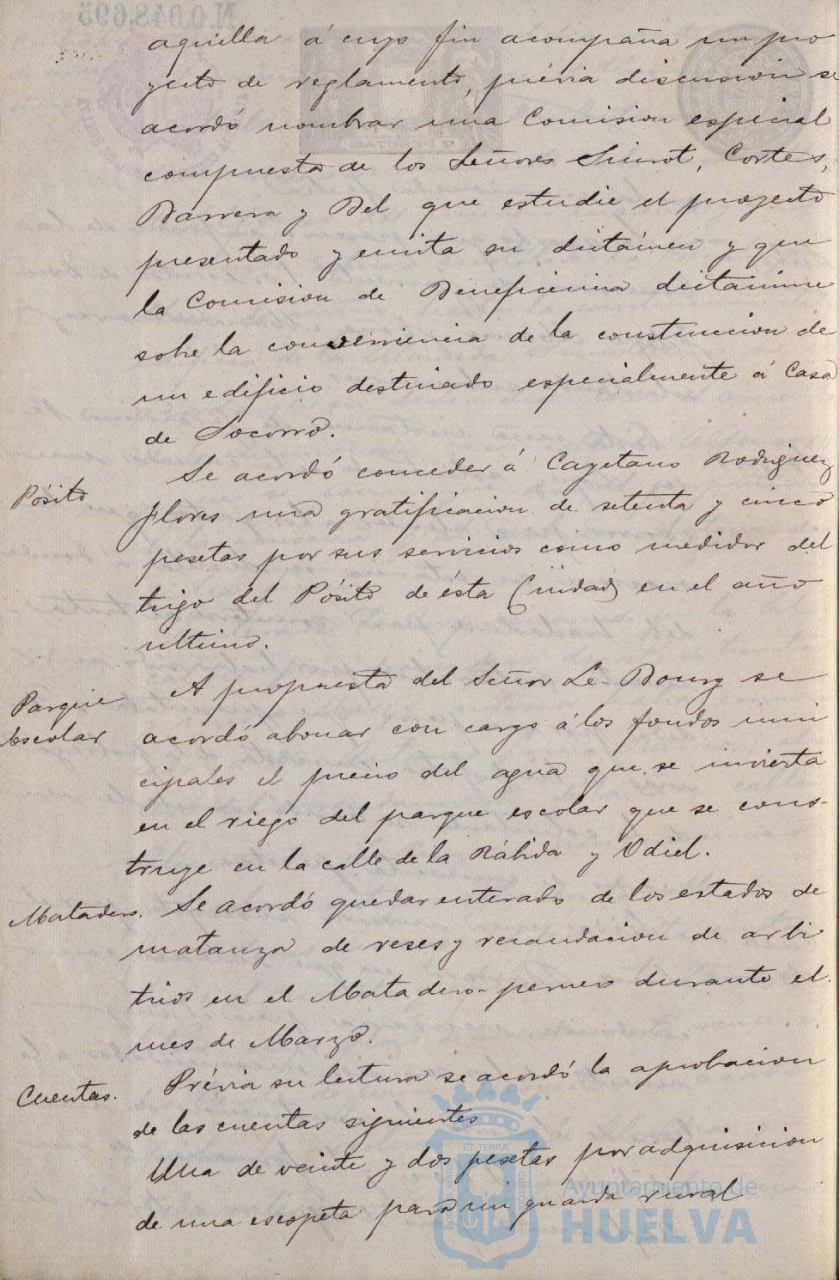 N.0.048.695
aquella á cuyo fin acompaña un pro
yecto de reglamento, prévia discusion se
acordó nombrar una Comision especial
compuesta de los Señores Sinrot, Cortes,
Barrera y Bel que estudie el proyecto
presentado y emita su dictámen y que
la Comision de Beneficencia dictamine
sobre la conveniencia de la construccion de
un edificio destinado especialmente á Casa
de Socorro.
Pósito
Se acordó conceder á Cayetano Rodriguez
Flores una gratificacion de setenta y cinco
pesetas por sus servicios como medidor del
trigo del Pósito de ésta Ciudad en el año
último.
Parque
Escolar
A propuesta del Señor Le-Bourg se
acordó abonar con cargo á los fondos muni
cipales el precio del agua que se invierta
en el riego del parque escolar que se cons-
truye en la calle de la Rábida y Odiel.
Matadero.
Se acordó quedar enterado de los estados de
matanza de reses y recaudacion de arbi
trios en el Matadero durante el
mes de Marzo.
Cuentas.
Prévia su lectura se acordó la aprobacion
de las cuentas siguientes
Una de veinte y dos pesetas por adquisicion
de una escopeta para un guarda rural
Ayuntamiento de
HUELVA